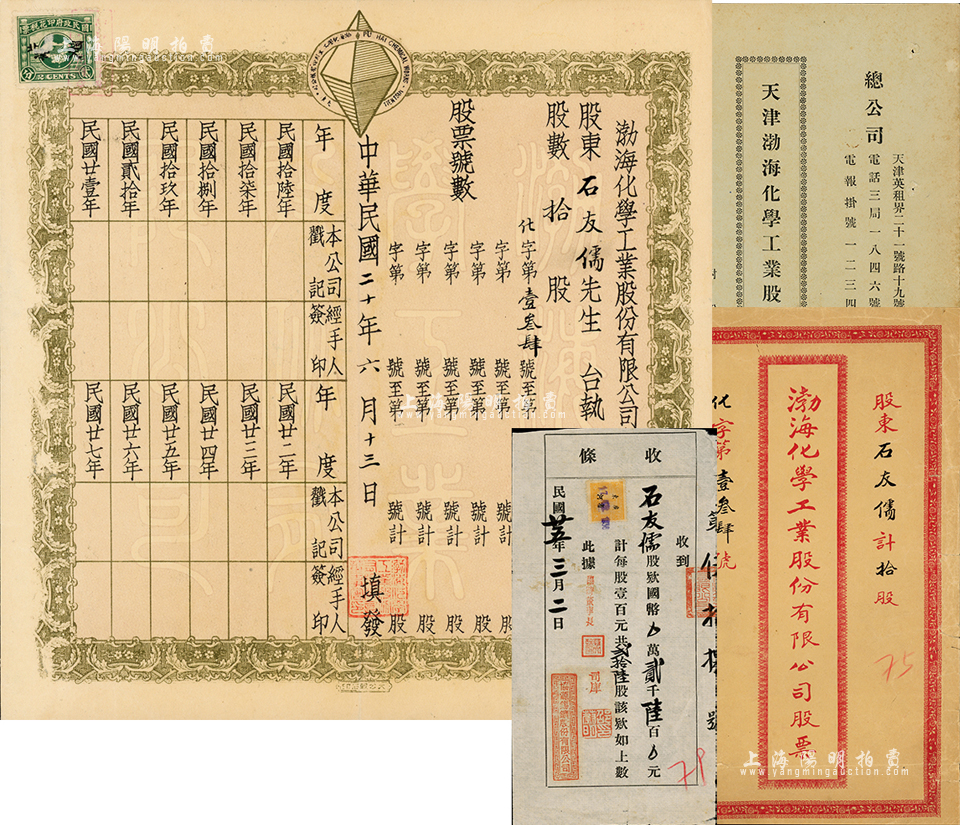 國民政府印花稅票
2 CENTS
PU HAI CHEMICAL WORKS
TIENTSIN
渤海化學工業股份有限公司
股東石友儒先生台執
股數拾股
股票號數
化字第壹叁肆號至第
字第 號至第 號計 股
字第 號至第 號計 股
字第 號至第 號計 股
字第 號至第 號計 股
中華民國二十年六月十三日填發
年度 本公司戳記 經手人簽印
民國拾陸年
民國拾柒年
民國拾捌年
民國拾玖年
民國貳拾年
民國廿壹年
年度 本公司戳記 經手人簽印
民國廿二年
民國廿三年
民國廿四年
民國廿五年
民國廿六年
民國廿七年
總公司
天津英租界二十一號路十九號
電話三局一八四六號
電報掛號一二三四
天津渤海化學工業股
股東石友儒計拾股
渤海化學工業股份有限公司股票
化字第壹叁肆號
75
收條
收到
石友儒股欵國幣0萬貳千陸百0元
計每股壹百元共貳拾陸股該欵如上數
此據
民國廿五年三月二日
78
上海陽明拍賣
www.yangmingauction.com
上海陽明拍賣
www.yangmingauction.com
上海陽明拍賣
www.yangmingauction.com
上海陽明拍賣
www.yangmingauction.com